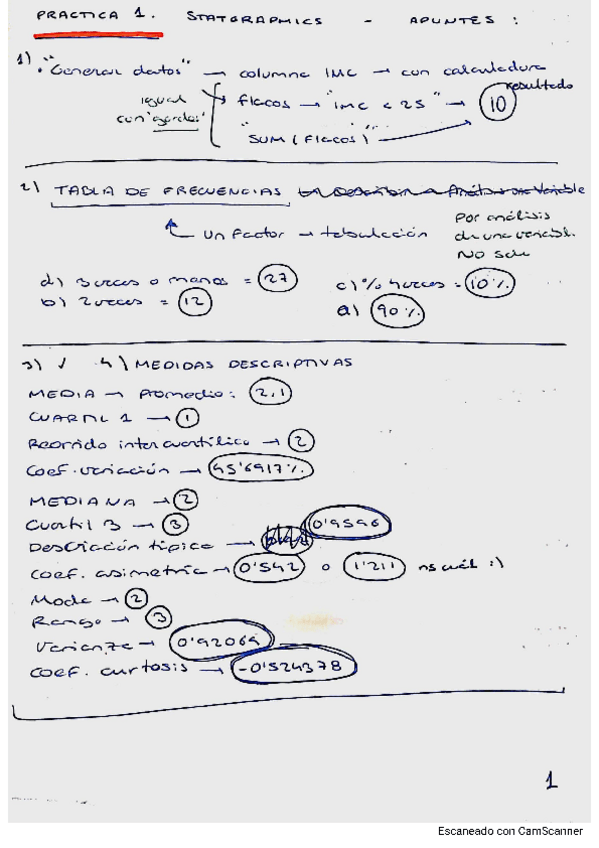 PRACTICA 1. STATGRAPHICS - APUNTES:
1) . "Generar datos" → columna IMC → con calculadora
igual con "gordos" flacos → "imc < 25" → 10 resultado
"SUM (Flacos)"
2) TABLA DE FRECUENCIAS
un factor → tabulación
Por análisis
de una variable.
No sale
d) 3 veces o menos = 27 c) % 4 veces = 10%
b) 2 veces = 12 a) 90%
3) ✓ 4) MEDIDAS DESCRIPTIVAS
MEDIA → Promedio: 2,1
CUARTIL 1 → 1
Recorrido intercuartílico → 2
Coef. variación → 45'6917%
MEDIANA → 2
Cuartil 3 → 3
Desviación típica → 0'9596
coef. asimetría → 0'542 o 1'211 ns cuál :)
Moda → 2
Rango → 3
Varianza → 0'92069
coef. curtosis → -0'524378
1
Escaneado con CamScanner